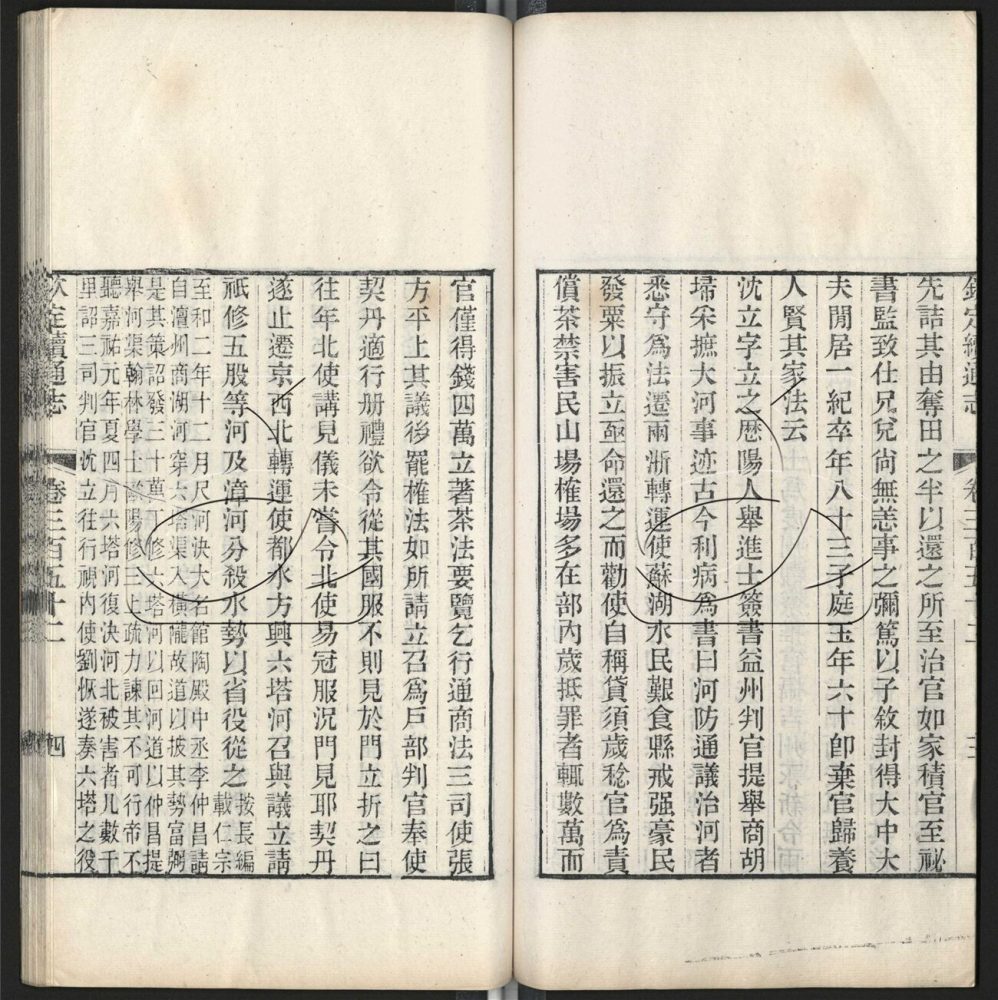 欽定續通志 卷三百五十二 三
先詰其由奪田之半以還之所至治官如家積官至祕
書監致仕兄兒尙無恙事之彌篤以子敘封得大中大
夫閒居一紀卒年八十三子庭玉年六十卽棄官歸養
人賢其家法云
沈立字立之歷陽人舉進士簽書益州判官提舉商胡
埽采摭大河事迹古今利病爲書曰河防通議治河者
悉守爲法遷兩浙轉運使蘇湖水民艱食縣戒强豪民
發粟以振立亟命還之而勸使自稱貸須歲稔官爲責
償茶禁害民山場榷場多在部內歲抵罪者輒數萬而
官僅得錢四萬立著茶法要覽乞行通商法三司使張
方平上其議後罷榷法如所請立召爲戶部判官奉使
契丹適行册禮欲令從其國服不則見於門立折之曰
往年北使講見儀未嘗令北使易冠服況門見耶契丹
遂止遷京西北轉運使都水方興六塔河召與議立請
祇修五股等河及漳河分殺水勢以省役從之按長編
載仁宗
至和二年十二月尺河決大名館陶殿中丞李仲昌請
自澶州商湖河穿六塔渠入橫隴故道以披其勢富弼
是其策詔發三十萬丁修六塔河以回河道以仲昌提
舉河渠翰林學士歐陽修三上疏力諫其不可行帝不
聽嘉祐元年夏四月六塔河復決河北被害者凡數千
里詔三司判官沈立往行視內使劉恢遂奏六塔之役
欽定續通志 卷三百五十二 四